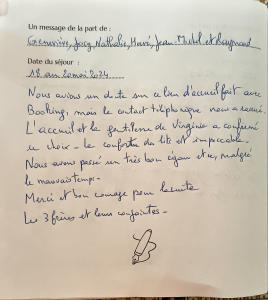 Un message de la part de :
Geneviève, Jacq, Nathalie, Hervé, Jean-Michel et Raymond
Date du séjour :
18 au 20 mai 2024
Nous avions un doute sur ce lieu d'accueil fait avec
Booking, mais le contact téléphonique nous a rassuré.
L'accueil et la gentillesse de Virginie a confirmé
ce choix - Le confort du lit est impeccable.
Nous avons passé un très bon séjour et ce, malgré
le mauvais temps -
Merci et bon courage pour la suite
Les 3 frères et leurs conjointes -